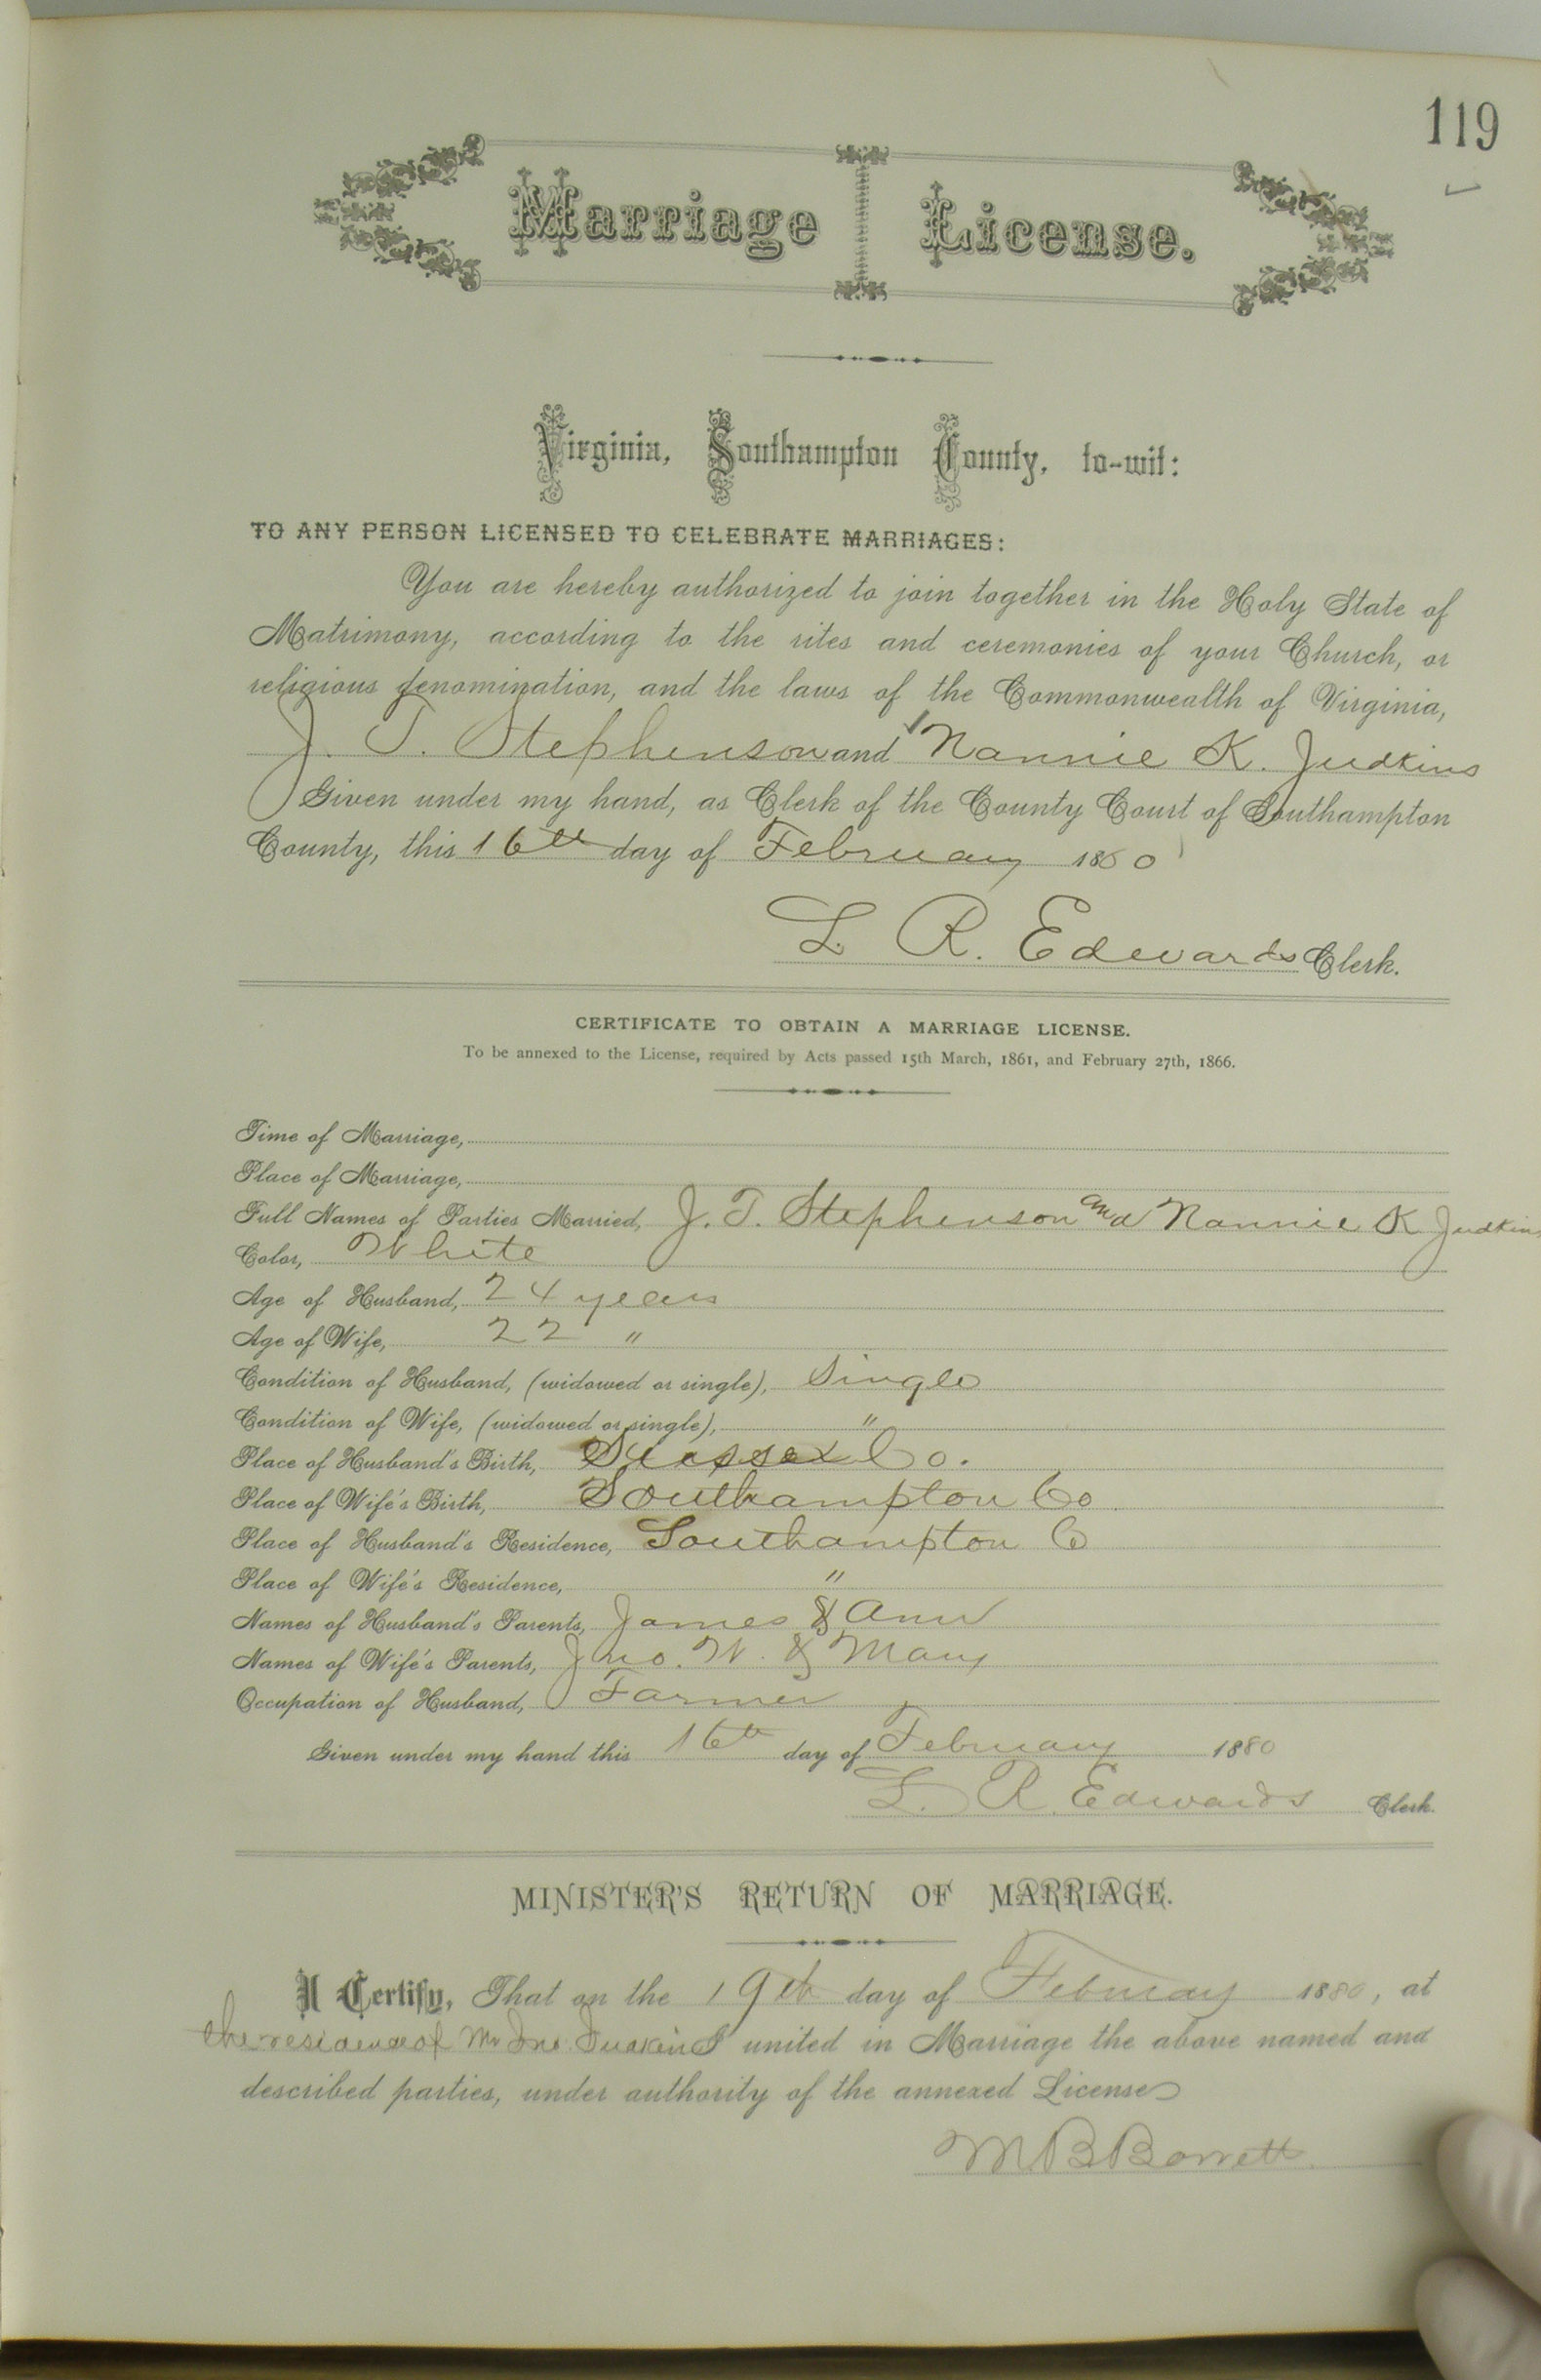 119
Marriage License.
Virginia, Southampton County, to-wit:
TO ANY PERSON LICENSED TO CELEBRATE MARRIAGES:
You are hereby authorized to join together in the Holy State of
Matrimony, according to the rites and ceremonies of your Church, or
religious denomination, and the laws of the Commonwealth of Virginia,
J. T. Stephenson and Nannie K. Judkins
Given under my hand, as Clerk of the County Court of Southampton
County, this 16th day of February 1880
L. R. Edwards Clerk.
CERTIFICATE TO OBTAIN A MARRIAGE LICENSE.
To be annexed to the License, required by Acts passed 15th March, 1861, and February 27th, 1866.
Time of Marriage,
Place of Marriage,
Full Names of Parties Married, J. T. Stephenson and Nannie K Judkins
Color, White
Age of Husband, 24 years
Age of Wife, 22 "
Condition of Husband, (widowed or single), Single
Condition of Wife, (widowed or single), "
Place of Husband's Birth, Sussex Co.
Place of Wife's Birth, Southampton Co
Place of Husband's Residence, Southampton Co
Place of Wife's Residence, "
Names of Husband's Parents, James & Ann
Names of Wife's Parents, Jno. W. & Mary
Occupation of Husband, Farmer
Given under my hand this 16th day of February 1880
L. R. Edwards Clerk.
MINISTER'S RETURN OF MARRIAGE.
I Certify, That on the 19th day of February 1880, at
the residence of Mr Jno. Judkins I united in Marriage the above named and
described parties, under authority of the annexed License
M B Barrett